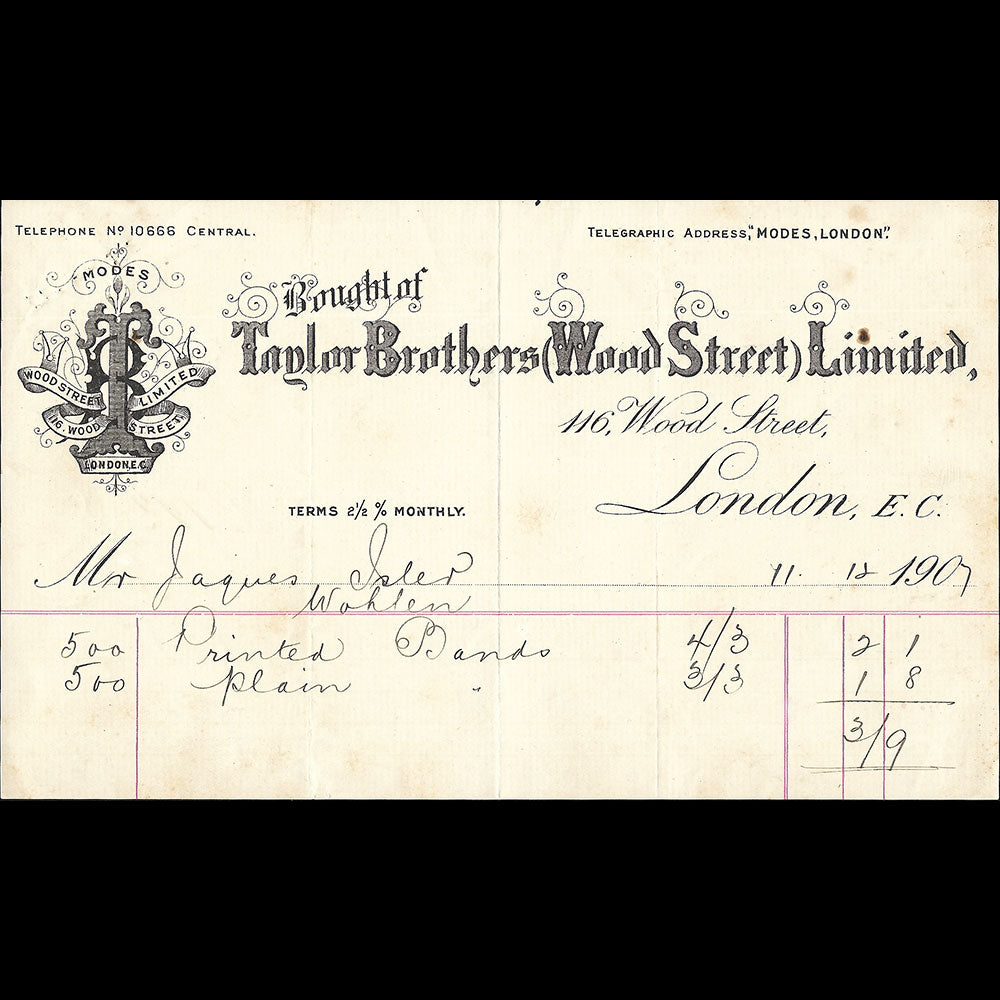 TELEPHONE Nº 10666 CENTRAL.
TELEGRAPHIC ADDRESS, "MODES, LONDON".
MODES
WOOD STREET LIMITED
116. WOOD STREET,
LONDON, E.C.
Bought of
Taylor Brothers (Wood Street) Limited,
116, Wood Street,
London, E.C.
TERMS 2½ % MONTHLY.
Mr Jaques Isler 11. 12 1907
Wohlen
500 Printed Bands 4/3 2 1
500 plain " 3/3 1 8
3/9